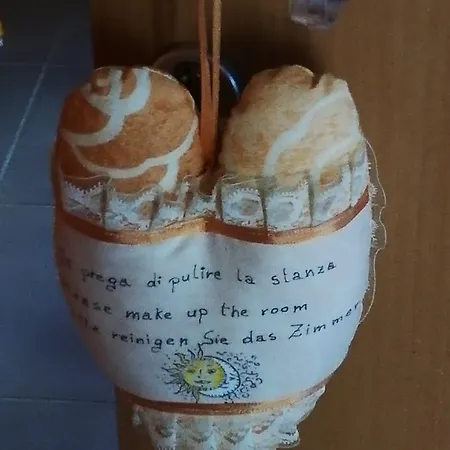 prega di pulire la stanza
make up the room
reinigen Sie das Zimmer